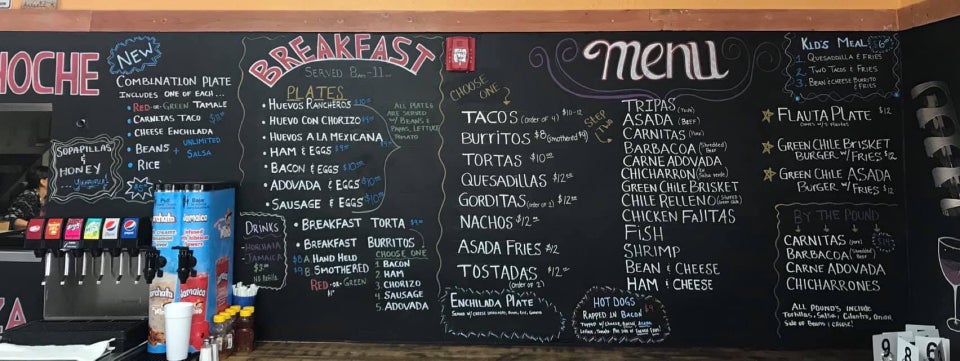 HOCHE
NEW
COMBINATION PLATE
INCLUDES ONE OF EACH...
• RED-OR-GREEN TAMALE
• CARNITAS TACO
• CHEESE ENCHILADA
• BEANS + UNLIMITED SALSA
• RICE
SOPAPILLAS & HONEY
BREAKFAST
SERVED 8am-11am
PLATES
• HUEVOS RANCHEROS
• HUEVO CON CHORIZO
• HUEVOS A LA MEXICANA
• HAM & EGGS
• BACON & EGGS
• ADOVADA & EGGS
• SAUSAGE & EGGS
ALL PLATES
ARE SERVED
W/ BEANS &
PAPAS, LETTUCE
TOMATO
• BREAKFAST TORTA
• BREAKFAST BURRITOS
$8 A HAND HELD
$9 B SMOTHERED
RED-OR-GREEN
CHOOSE ONE
1 BACON
2. HAM
3. CHORIZO
4 SAUSAGE
5. ADOVADA
DRINKS
-HORCHATA
-JAMAICA
NO Refills
menu
CHOOSE ONE
TACOS (order of 4) $10-12
BURRITOS $8 (smothered $9)
TORTAS $10
QUESADILLAS $12
GORDITAS (order of 2) $12
NACHOS $12
ASADA FRIES $12
TOSTADAS (order of 2) $12
ENCHILADA PLATE
TRIPAS
ASADA (Beef)
CARNITAS (Pork)
BARBACOA (Shredded Beef)
CARNE ADOVADA
CHICHARRON
GREEN CHILE BRISKET
CHILE RELLENO
CHICKEN FAJITAS
FISH
SHRIMP
BEAN & CHEESE
HAM & CHEESE
HOT DOGS
RAPPED IN BACON
KID'S MEAL $6
1. QUESADILLA & FRIES
2. TWO TACOS & FRIES
3. BEAN & CHEESE BURRITO & FRIES
FLAUTA PLATE $12
GREEN CHILE BRISKET
BURGER W/ FRIES $12
GREEN CHILE ASADA
BURGER W/ FRIES $12
BY THE POUND
CARNITAS (pork)
BARBACOA (Shredded Beef)
CARNE ADOVADA
CHICHARRONES
ALL POUNDS INCLUDE:
Tortillas, Salsa, Cilantro, Onion
Side of Beans & Cheese!
Jamaica
pepsi
9
8
6